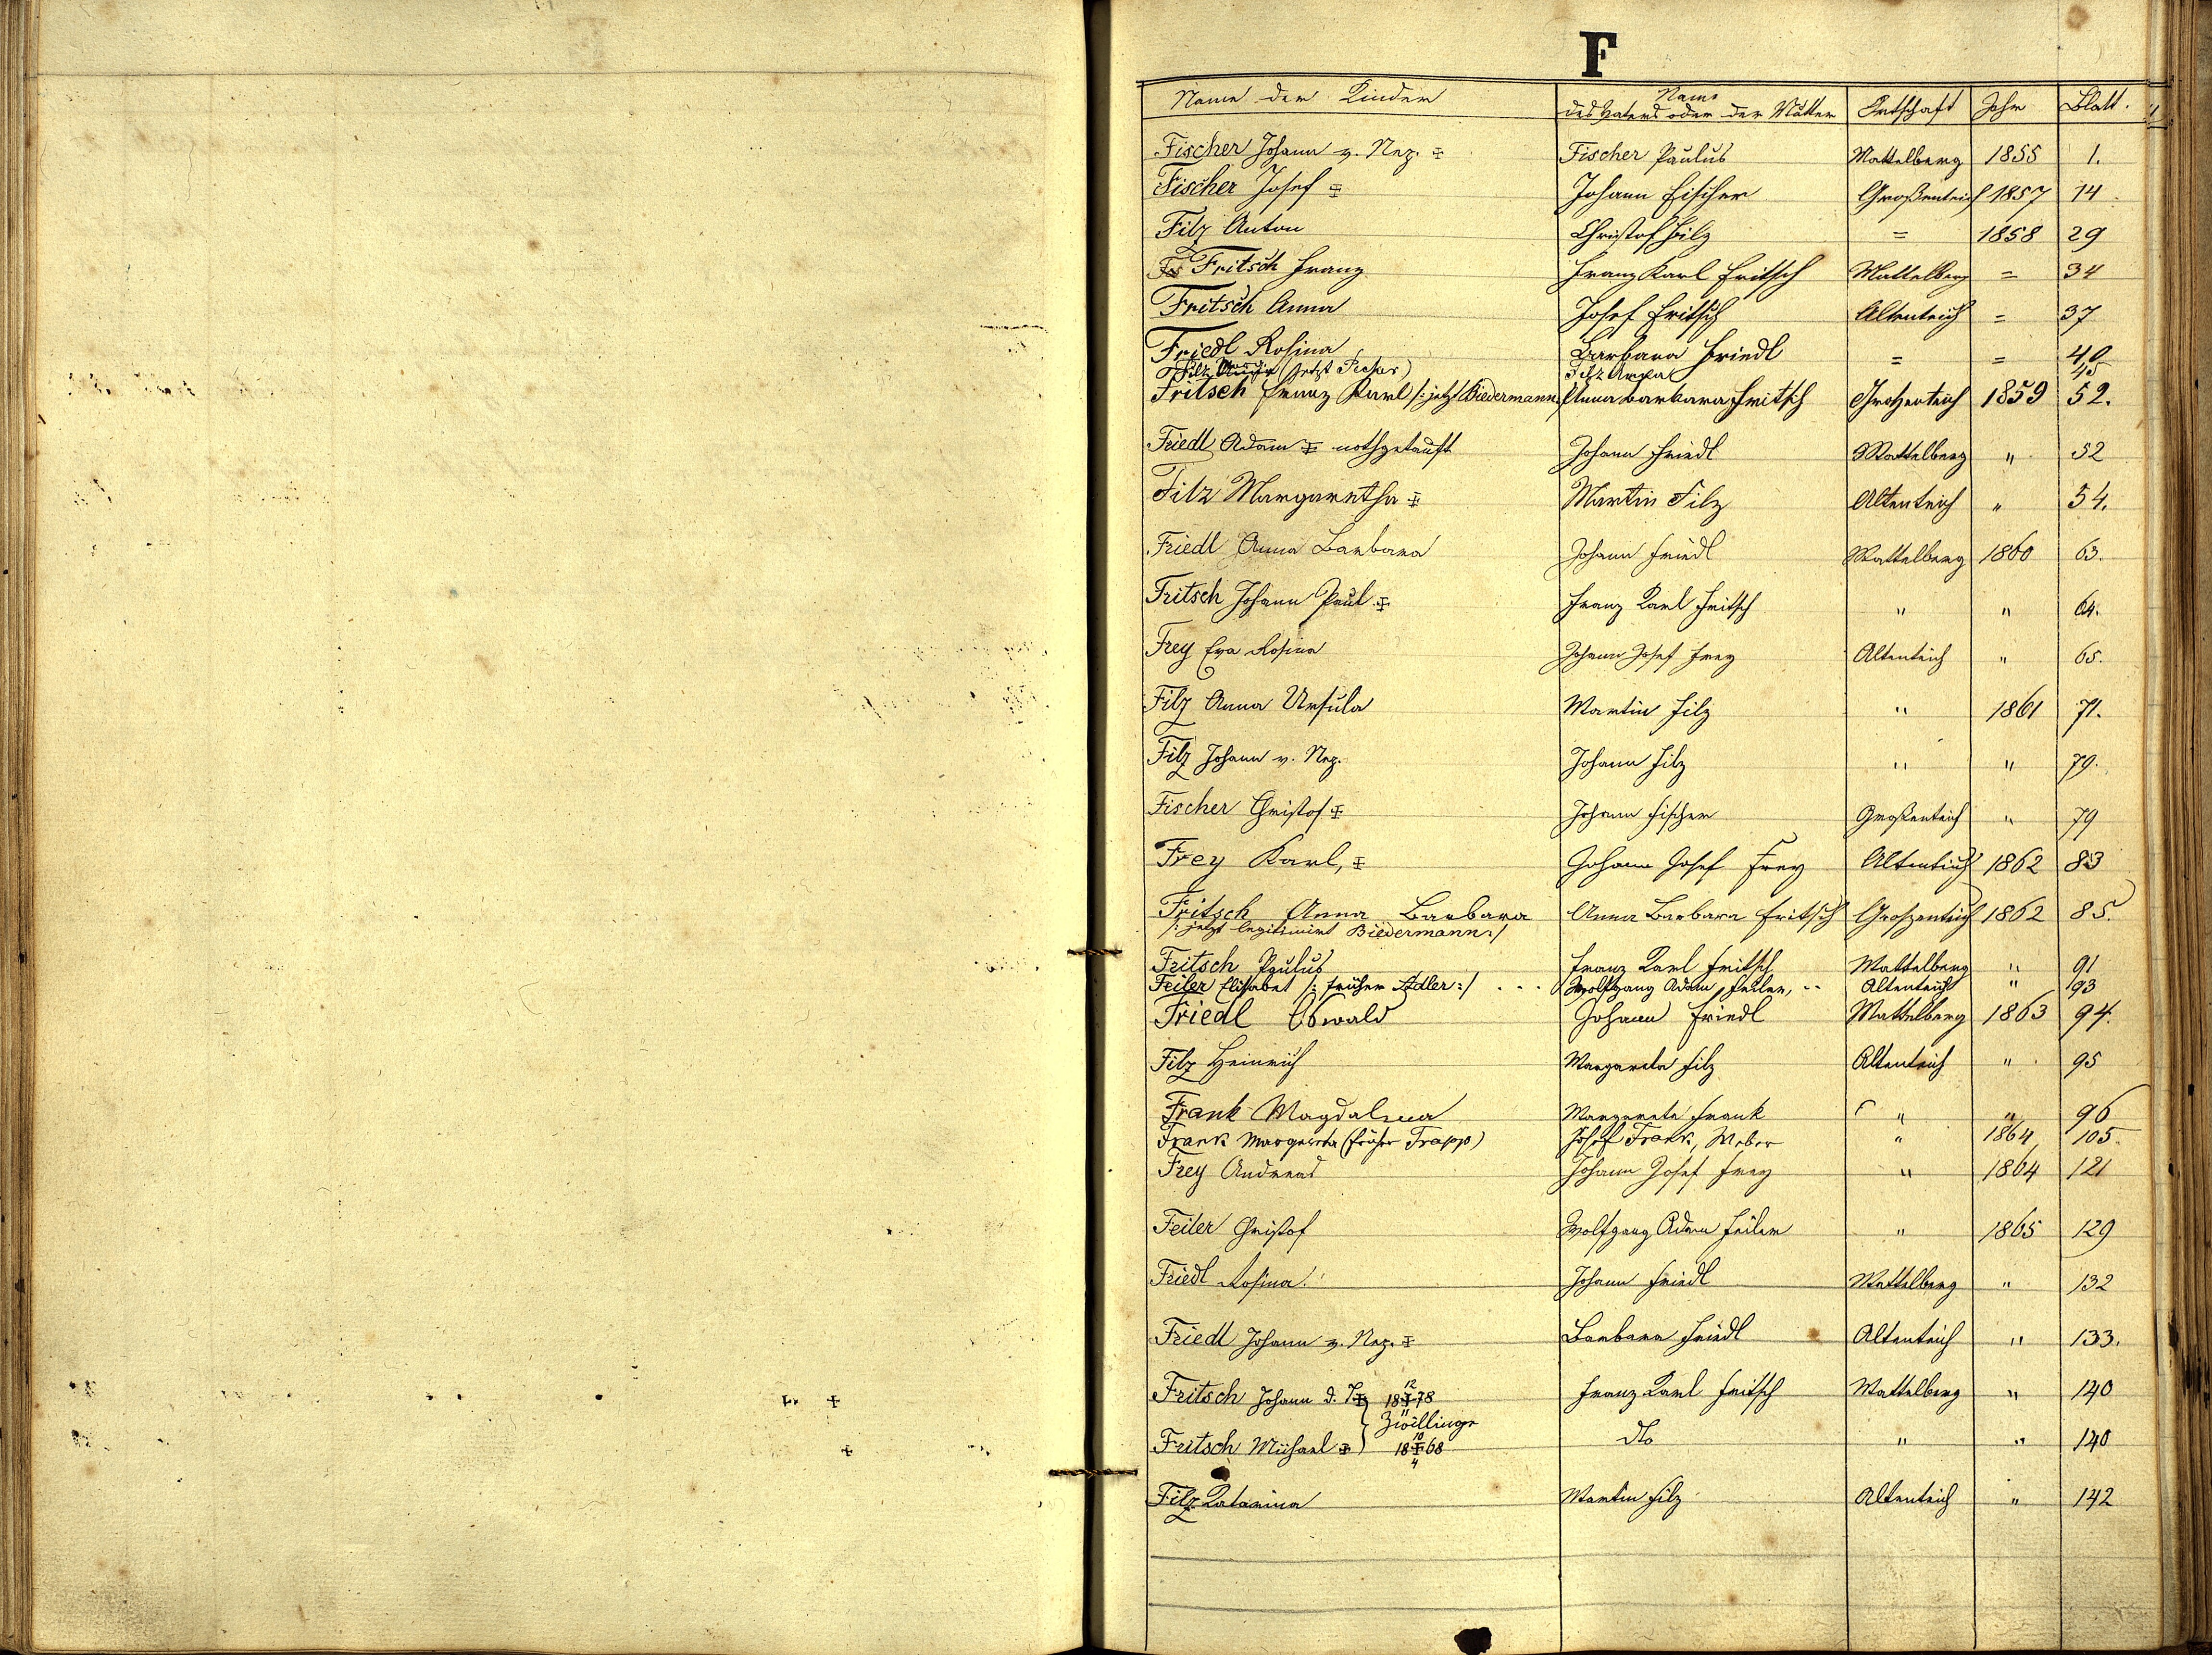 F
Name der Kinder Name des Vaters oder der Mutter Ortschaft Jahr Blatt.
Fischer Johann v. Nep. ‡ Fischer Paulus Mattelberg 1855 1.
Fischer Josef ‡ Johann Fischer Großenteich 1857 14
Filz Anton Christof Filz = 1858 29
Fritsch Franz Franz Karl Fritsch Mattelberg = 34
Fritsch Anna Josef Fritsch Altenteich = 37
Friedl Rosina Barbara Friedl = = 40
Filz (jetzt Pecher) Filz Anna 45
Fritsch Franz Karl /: jetzt Biedermann Anna Barbara Fritsch Großenteich 1859 52.
Friedl Adam ‡ nothgetauft Johann Friedl Mattelberg " 52
Filz Margaretha ‡ Martin Filz Altenteich " 54.
Friedl Anna Barbara Johann Friedl Mattelberg 1860 63.
Fritsch Johann Paul ‡ Franz Karl Fritsch " " 64.
Frey Eva Rosina Johann Josef Frey Altenteich " 65.
Filz Anna Ursula Martin Filz " 1861 71.
Filz Johann v. Nep. Johann Filz " " 79.
Fischer Christof ‡ Johann Fischer Großenteich " 79
Frey Karl, ‡ Johann Josef Frey Altenteich 1862 83
Fritsch Anna Barbara Anna Barbara Fritsch Großenteich 1862 85.
/: jetzt legitimirt Biedermann :/
Fritsch Paulus Franz Karl Fritsch Mattelberg " 91
Feiler Elisabet /: früher Adler :/ . . . Wolfgang Adam Feiler, Altenteich " 93
Friedl Oswald Johann Friedl Mattelberg 1863 94.
Filz Heinrich Margareta Filz Altenteich " 95
Frank Magdalena Margareta Frank " " 96
Frank Margareta (früher Trapp) Josef Frank, Weber " 1864 105.
Frey Andreas Johann Josef Frey " 1864 121
Feiler Christof Wolfgang Adam Feiler " 1865 129
Friedl Rosina. Johann Friedl Mattelberg " 132
Friedl Johann v. Nep. ‡ Barbara Friedl Altenteich " 133.
Fritsch Johann d. T. ‡ 18 12/11 78 Franz Karl Fritsch Mattelberg " 140
Zwillinge
Fritsch Michael ‡ 18 10/4 68 dto " " 140
Filz Katarina Martin Filz Altenteich " 142